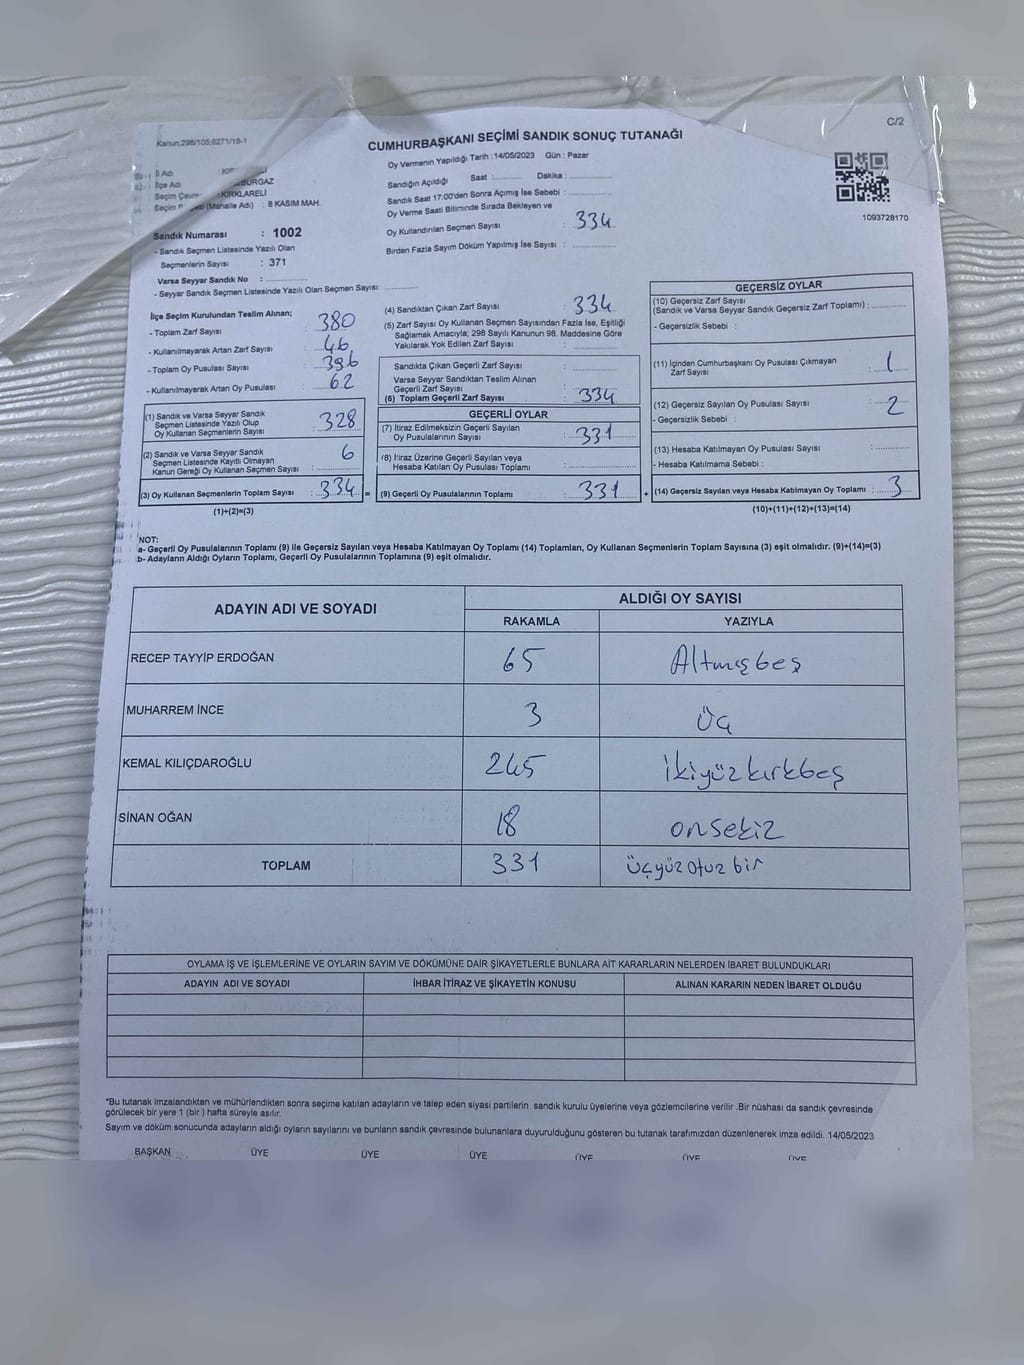 C/2
Kanun;298/105;6271/19-1
CUMHURBAŞKANI SEÇİMİ SANDIK SONUÇ TUTANAĞI
İl Adı
İlçe Adı
Seçim Çevre : KIRKLARELİ
(Mahalle Adı) : 8 KASIM MAH.
Sandık Numarası : 1002
- Sandık Seçmen Listesinde Yazılı Olan
Seçmenlerin Sayısı : 371
Varsa Seyyar Sandık No :
- Seyyar Sandık Seçmen Listesinde Yazılı Olan Seçmen Sayısı:
Oy Vermenin Yapıldığı Tarih :14/05/2023 Gün : Pazar
Sandığın Açıldığı Saat : Dakika :
Sandık Saat 17:00'den Sonra Açımış İse Sebebi :
Oy Verme Saati Bitiminde Sırada Bekleyen ve
Oy Kullandırılan Seçmen Sayısı : 334
Birden Fazla Sayım Döküm Yapılmış İse Sayısı :
1093728170
İlçe Seçim Kurulundan Teslim Alınan;
- Toplam Zarf Sayısı : 380
- Kullanılmayarak Artan Zarf Sayısı : 46
- Toplam Oy Pusulası Sayısı : 396
- Kullanılmayarak Artan Oy Pusulası : 62
(1) Sandık ve Varsa Seyyar Sandık
Seçmen Listesinde Yazılı Olup
Oy Kullanan Seçmenlerin Sayısı : 328
(2) Sandık ve Varsa Seyyar Sandık
Seçmen Listesinde Kayıtlı Olmayan
Kanun Gereği Oy Kullanan Seçmen Sayısı : 6
(3) Oy Kullanan Seçmenlerin Toplam Sayısı : 334 =
(1)+(2)=(3)
(4) Sandıktan Çıkan Zarf Sayısı : 334
(5) Zarf Sayısı Oy Kullanan Seçmen Sayısından Fazla İse, Eşitliği
Sağlamak Amacıyla; 298 Sayılı Kanunun 98. Maddesine Göre
Yakılarak Yok Edilen Zarf Sayısı :
Sandıkta Çıkan Geçerli Zarf Sayısı :
Varsa Seyyar Sandıktan Teslim Alınan
Geçerli Zarf Sayısı :
(6) Toplam Geçerli Zarf Sayısı : 334
GEÇERLİ OYLAR
(7) İtiraz Edilmeksizin Geçerli Sayılan
Oy Pusulalarının Sayısı : 331
(8) İtiraz Üzerine Geçerli Sayılan veya
Hesaba Katılan Oy Pusulası Toplamı :
(9) Geçerli Oy Pusulalarının Toplamı : 331 +
GEÇERSİZ OYLAR
(10) Geçersiz Zarf Sayısı
(Sandık ve Varsa Seyyar Sandık Geçersiz Zarf Toplamı) :
- Geçersizlik Sebebi :
(11) İçinden Cumhurbaşkanı Oy Pusulası Çıkmayan
Zarf Sayısı : 1
(12) Geçersiz Sayılan Oy Pusulası Sayısı : 2
- Geçersizlik Sebebi :
(13) Hesaba Katılmayan Oy Pusulası Sayısı :
- Hesaba Katılmama Sebebi :
(14) Geçersiz Sayılan veya Hesaba Katılmayan Oy Toplamı : 3
(10)+(11)+(12)+(13)=(14)
NOT:
a- Geçerli Oy Pusulalarının Toplamı (9) ile Geçersiz Sayılan veya Hesaba Katılmayan Oy Toplamı (14) Toplamları, Oy Kullanan Seçmenlerin Toplam Sayısına (3) eşit olmalıdır. (9)+(14)=(3)
b- Adayların Aldığı Oyların Toplamı, Geçerli Oy Pusulalarının Toplamına (9) eşit olmalıdır.
ADAYIN ADI VE SOYADI ALDIĞI OY SAYISI
RAKAMLA YAZIYLA
RECEP TAYYİP ERDOĞAN 65 Altmışbeş
MUHARREM İNCE 3 üç
KEMAL KILIÇDAROĞLU 245 ikiyüzkırkbeş
SİNAN OĞAN 18 onsekiz
TOPLAM 331 üçyüzotuzbir
OYLAMA İŞ VE İŞLEMLERİNE VE OYLARIN SAYIM VE DÖKÜMÜNE DAİR ŞİKAYETLERLE BUNLARA AİT KARARLARIN NELERDEN İBARET BULUNDUKLARI
ADAYIN ADI VE SOYADI İHBAR İTİRAZ VE ŞİKAYETİN KONUSU ALINAN KARARIN NEDEN İBARET OLDUĞU
*Bu tutanak imzalandıktan ve mühürlendikten sonra seçime katılan adayların ve talep eden siyasi partilerin sandık kurulu üyelerine veya gözlemcilerine verilir .Bir nüshası da sandık çevresinde
görülecek bir yere 1 (bir ) hafta süreyle asılır.
Sayım ve döküm sonucunda adayların aldığı oyların sayılarını ve bunların sandık çevresinde bulunanlara duyurulduğunu gösteren bu tutanak tarafımızdan düzenlenerek imza edildi. 14/05/2023
BAŞKAN ÜYE ÜYE ÜYE ÜYE ÜYE ÜYE